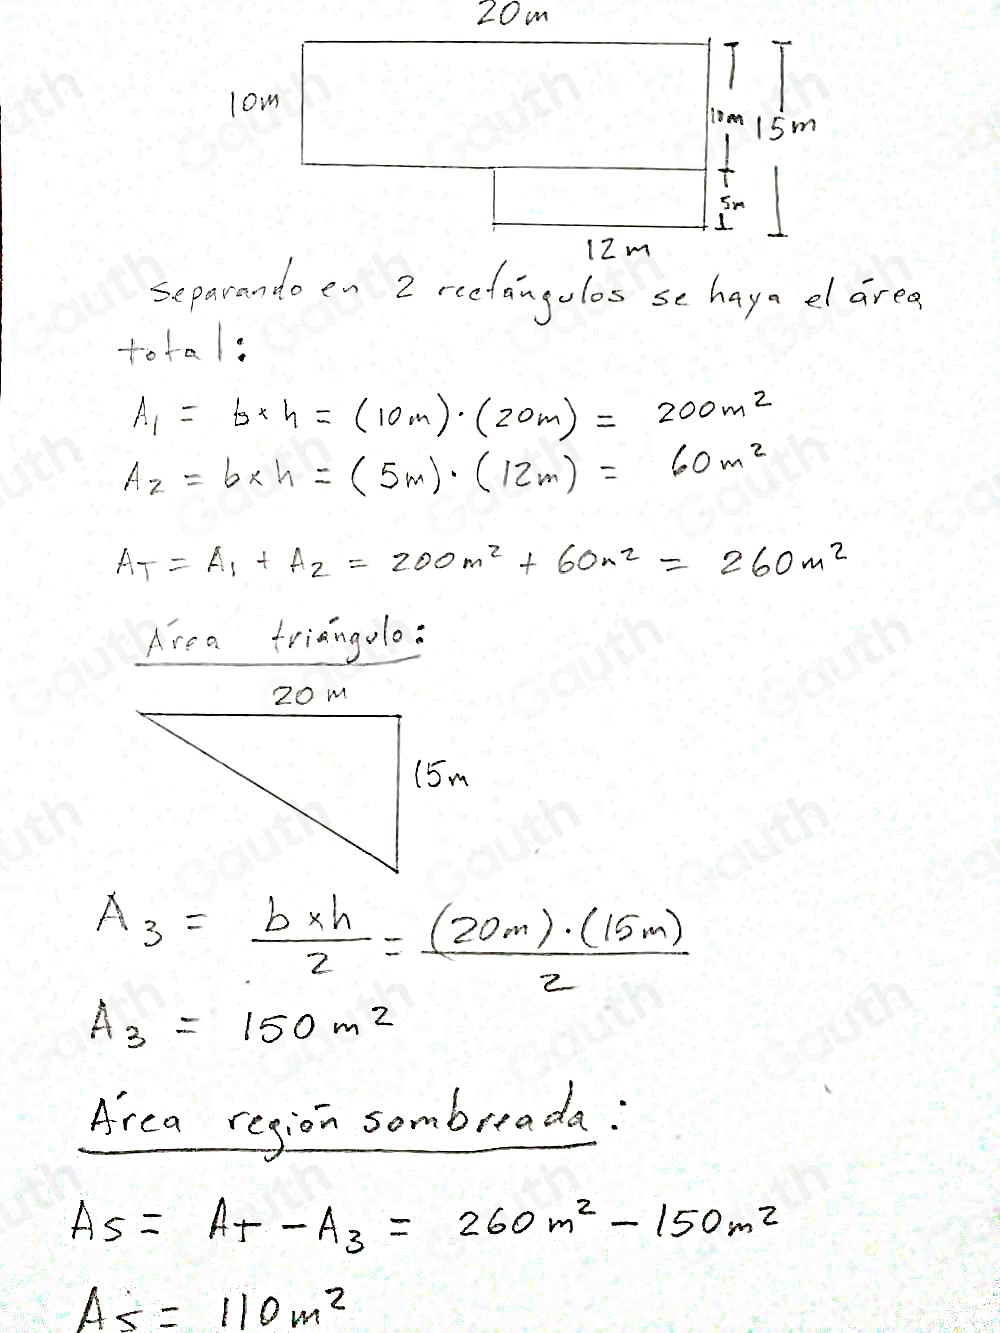 20m
10m
10m 15m
5m
12m
Separando en 2 rectángulos se haya el área
total:
A₁ = b × h = (10m)·(20m) = 200m²
A₂ = b × h = (5m)·(12m) = 60m²
A_T = A₁ + A₂ = 200m² + 60m² = 260m²
Área triángulo:
20 m
15m
A₃ = b × h / 2 = (20m)·(15m) / 2
A₃ = 150 m²
Área región sombreada:
As = A_T - A₃ = 260m² - 150m²
As = 110m²